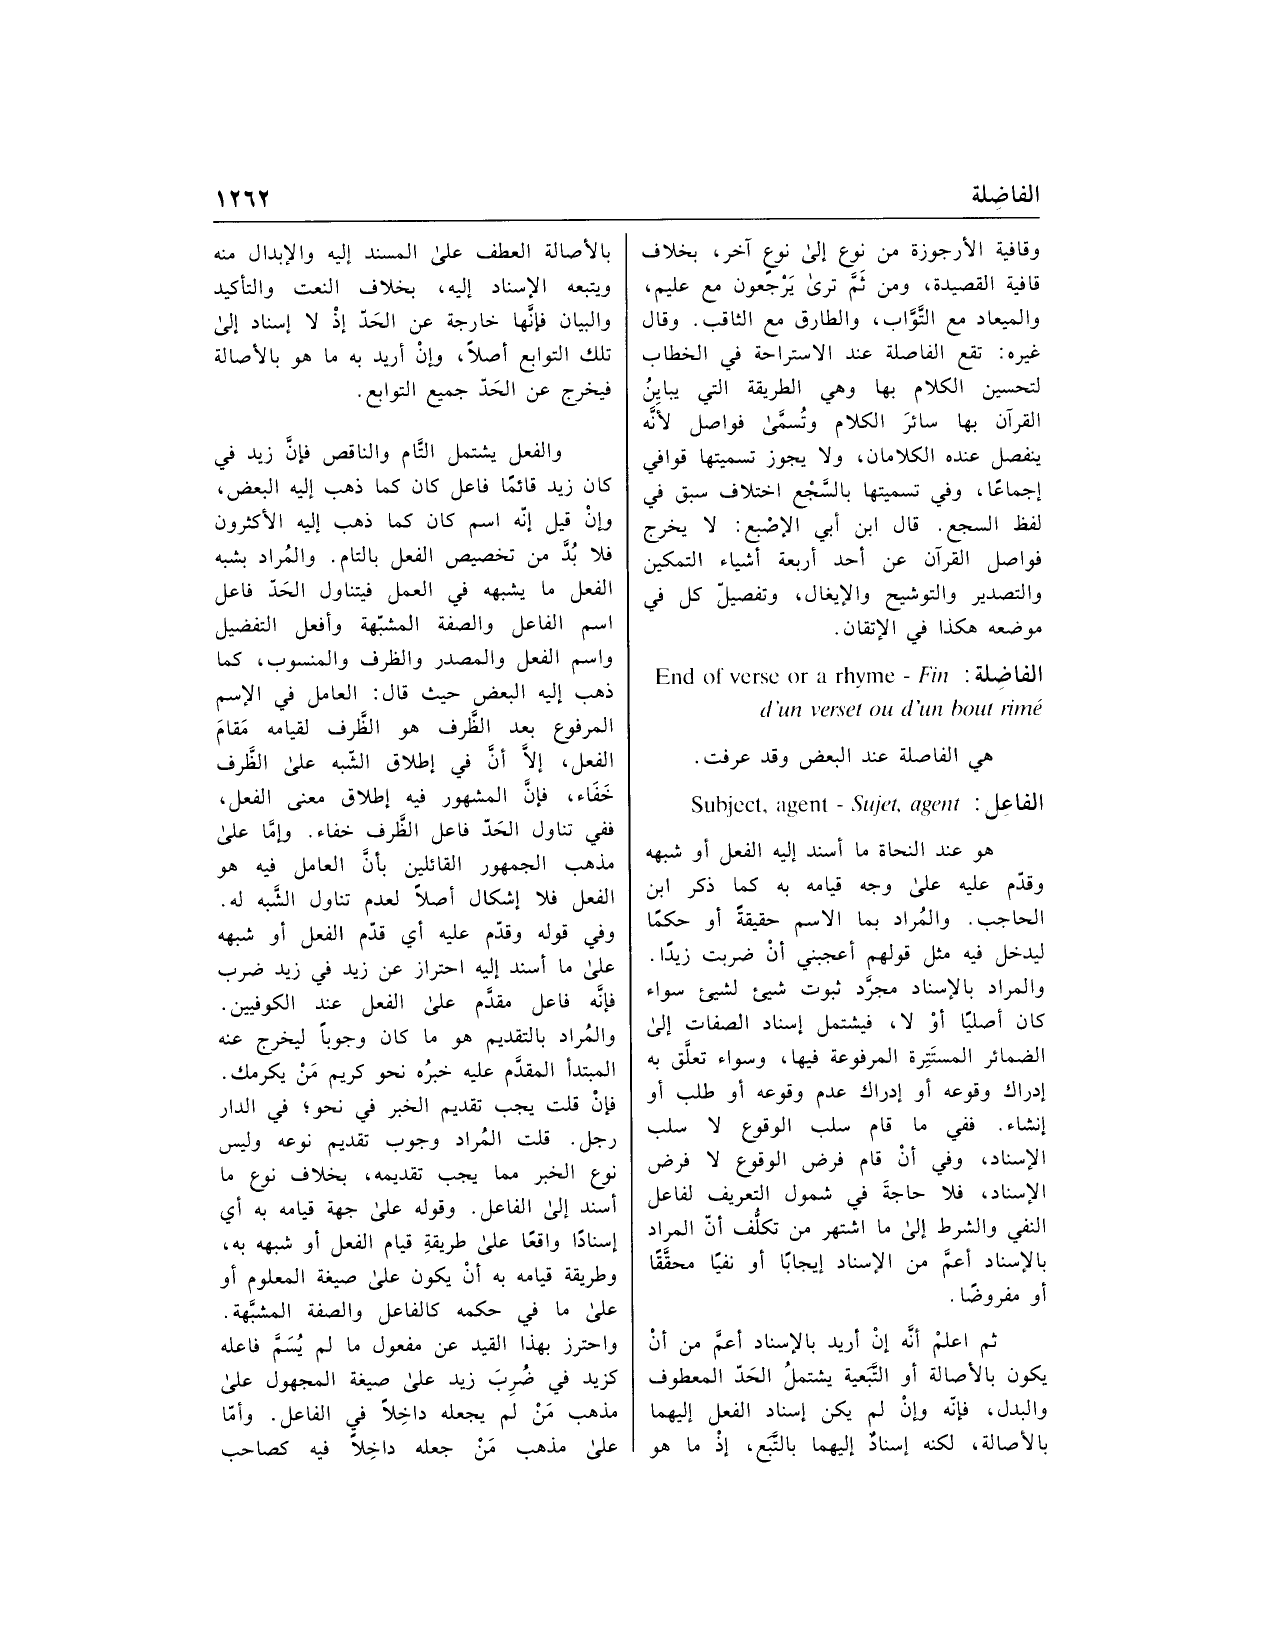 الفاضِلة
١٢٦٢
وقافية الأرجوزة من نوع إلىٰ نوعٍ آخر، بخلاف
قافية القصيدة، ومن ثَمَّ ترىٰ يَرْجعون مع عليم،
والميعاد مع الثَّوَّاب، والطارق مع الثاقب. وقال
غيره: تقع الفاصلة عند الاستراحة في الخطاب
لتحسين الكلام بها وهي الطريقة التي يباينُ
القرآن بها سائرَ الكلام وتُسمَّىٰ فواصل لأنَّه
ينفصل عنده الكلامان، ولا يجوز تسميتها قوافي
إجماعًا، وفي تسميتها بالسَّجْع اختلاف سبق في
لفظ السجع. قال ابن أبي الإصْبع: لا يخرج
فواصل القرآن عن أحد أربعة أشياء التمكين
والتصدير والتوشيح والإيغال، وتفصيلّ كل في
موضعه هكذا في الإتقان.
الفاضِلة: End of verse or a rhyme - Fin
d'un verset ou d'un bout rimé
هي الفاصلة عند البعض وقد عرفت.
الفاعِل: Subject, agent - Sujet, agent
هو عند النحاة ما أسند إليه الفعل أو شبهه
وقدّم عليه علىٰ وجه قيامه به كما ذكر ابن
الحاجب. والمُراد بما الاسم حقيقةً أو حكمًا
ليدخل فيه مثل قولهم أعجبني أنْ ضربت زيدًا.
والمراد بالإسناد مجرَّد ثبوت شيئ لشيئ سواء
كان أصليًا أوْ لا، فيشتمل إسناد الصفات إلىٰ
الضمائر المستَتِرة المرفوعة فيها، وسواء تعلَّق به
إدراك وقوعه أو إدراك عدم وقوعه أو طلب أو
إنشاء. ففي ما قام سلب الوقوع لا سلب
الإسناد، وفي أنْ قام فرض الوقوع لا فرض
الإسناد، فلا حاجةَ في شمول التعريف لفاعل
النفي والشرط إلىٰ ما اشتهر من تكلُّف أنّ المراد
بالإسناد أعمَّ من الإسناد إيجابًا أو نفيًا محقَّقًا
أو مفروضًا.
ثم اعلمْ أنَّه إنْ أريد بالإسناد أعمَّ من أنْ
يكون بالأصالة أو التَّبَعية يشتملُ الحَدّ المعطوف
والبدل، فإنّه وإنْ لم يكن إسناد الفعل إليهما
بالأصالة، لكنه إسنادٌ إليهما بالتَّبَع، إذْ ما هو
بالأصالة العطف علىٰ المسند إليه والإبدال منه
ويتبعه الإسناد إليه، بخلاف النعت والتأكيد
والبيان فإنَّها خارجة عن الحَدّ إذْ لا إسناد إلىٰ
تلك التوابع أصلاً، وإنْ أريد به ما هو بالأصالة
فيخرج عن الحَدّ جميع التوابع.
والفعل يشتمل التَّام والناقص فإنَّ زيد في
كان زيد قائمًا فاعل كان كما ذهب إليه البعض،
وإنْ قيل إنّه اسم كان كما ذهب إليه الأكثرون
فلا بُدَّ من تخصيص الفعل بالتام. والمُراد بشبه
الفعل ما يشبهه في العمل فيتناول الحَدّ فاعل
اسم الفاعل والصفة المشبّهة وأفعل التفضيل
واسم الفعل والمصدر والظرف والمنسوب، كما
ذهب إليه البعض حيث قال: العامل في الإسم
المرفوع بعد الظَّرف هو الظَّرف لقيامه مَقامَ
الفعل، إلاَّ أنَّ في إطلاق الشّبه علىٰ الظَّرف
خَفَاء، فإنَّ المشهور فيه إطلاق معنى الفعل،
ففي تناول الحَدّ فاعل الظَّرف خفاء. وإمَّا علىٰ
مذهب الجمهور القائلين بأنَّ العامل فيه هو
الفعل فلا إشكال أصلاً لعدم تناول الشَّبه له.
وفي قوله وقدّم عليه أي قدّم الفعل أو شبهه
علىٰ ما أسند إليه احتراز عن زيد في زيد ضرب
فإنَّه فاعل مقدَّم علىٰ الفعل عند الكوفيين.
والمُراد بالتقديم هو ما كان وجوباً ليخرج عنه
المبتدأ المقدَّم عليه خبرُه نحو كريم مَنْ يكرمك.
فإنْ قلت يجب تقديم الخبر في نحو؛ في الدار
رجل. قلت المُراد وجوب تقديم نوعه وليس
نوع الخبر مما يجب تقديمه، بخلاف نوع ما
أسند إلىٰ الفاعل. وقوله علىٰ جهة قيامه به أي
إسنادًا واقعًا علىٰ طريقةِ قيام الفعل أو شبهه به،
وطريقة قيامه به أنْ يكون علىٰ صيغة المعلوم أو
علىٰ ما في حكمه كالفاعل والصفة المشبَّهة.
واحترز بهذا القيد عن مفعول ما لم يُسَمَّ فاعله
كزيد في ضُرِبَ زيد علىٰ صيغة المجهول علىٰ
مذهب مَنْ لم يجعله داخِلاً في الفاعل. وأمّا
علىٰ مذهب مَنْ جعله داخِلاً فيه كصاحب